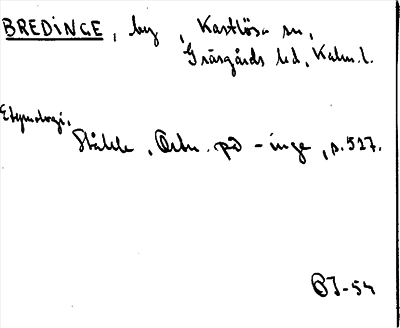 BREDINGE, by, Kastlösa sn,
Gräsgårds hd, Kalm.l.
Etymologi.
Ståhle, Ortn. på -inge, s.527.
BJ-54